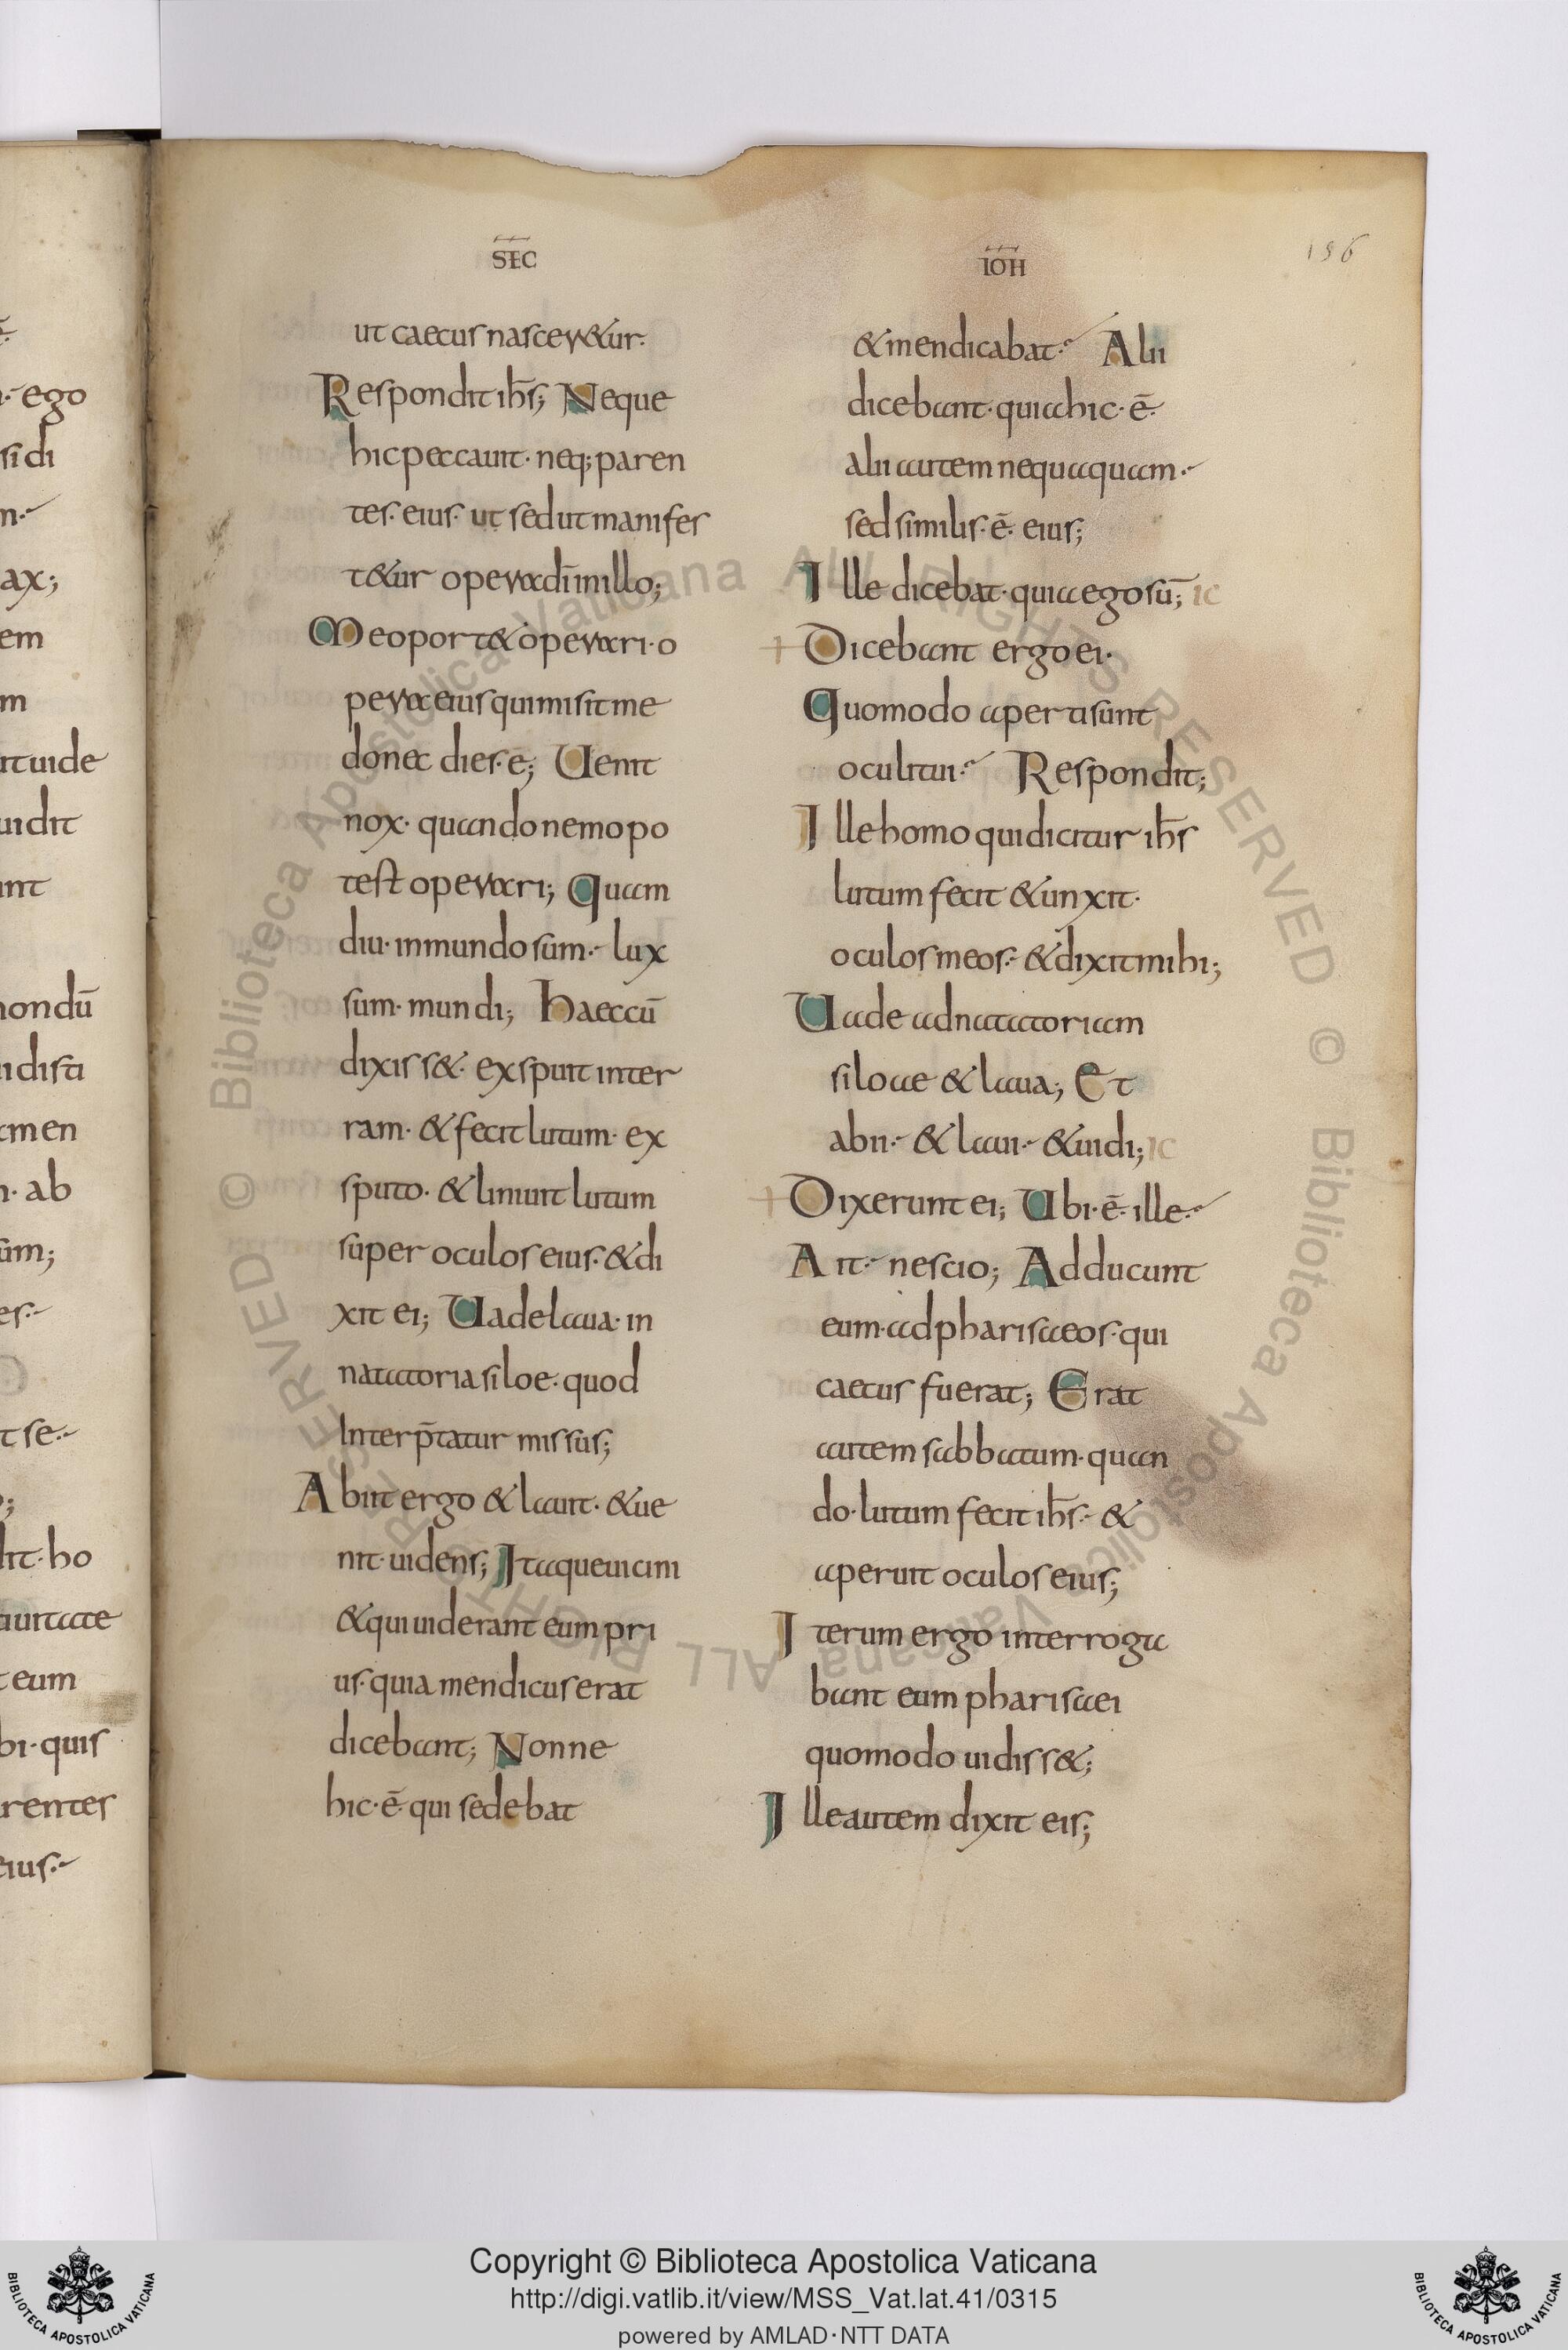 SEC
IOH
196
ut caecus nascer&ur·
Respondit ih̅s; Neque
hic peccauit· neq; paren
tes· eius· ut sed ut manifes
t&ur opera dī in illo;
Me oport& operari· o
pera eius qui misit me
donec dies· ē; Uenit
nox· quando nemo po
test operari; Quam
diu· in mundo sum·- lux
sum· mundi; Haec cū
dixiss&· exspuit in ter
ram· & fecit lutum· ex
sputo· & liniuit lutum
super oculos eius· & di
xit ei; Uade laua· in
natatoria siloe· quod
Interp̄tatur missus;
Abiit ergo & lauit· & ue
nit· uidens; Itaque uicini
& qui uiderant eum pri
us· quia mendicus erat
dicebant; Nonne
hic· ē· qui sedebat
& mendicabat·- Alii
dicebant· quia hic· ē·
alii autem nequaquam·-
sed similis· ē· eius;
Ille dicebat· quia ego sū; IC
+ Dicebant ergo ei·
Quomodo aperti sunt
oculi tui·- Respondit;
Ille homo qui dicitur ih̅s
lutum fecit & unxit·
oculos meos·- & dixit mihi;
Uade ad natatoriam
siloae & laua; Et
abii·- & laui·- & uidi; IC
+ Dixerunt ei; Ubi· ē· ille·-
Ait·- nescio; Adducunt
eum· ad pharisaeos· qui
caecus fuerat; Erat
autem sabbatum· quan
do· lutum fecit ih̅s·- &
aperuit oculos eius;
Iterum ergo interroga
bant eum pharisaei
quomodo uidiss&;
Ille autem dixit eis;
ego
si di
ax;
em
m
it uide
uidit
unt
nondū
uidisti
men
· ab
um;
es·-
t se·-
dit· ho
ciuitate
t eum
bi· quis
rentes
eius·-
© Biblioteca Apostolica Vaticana ALL RIGHTS RESERVED © Biblioteca Apostolica Vaticana ALL RIGHTS RESERVED
Copyright © Biblioteca Apostolica Vaticana
http://digi.vatlib.it/view/MSS_Vat.lat.41/0315
powered by AMLAD·NTT DATA
BIBLIOTECA APOSTOLICA VATICANA
BIBLIOTECA APOSTOLICA VATICANA